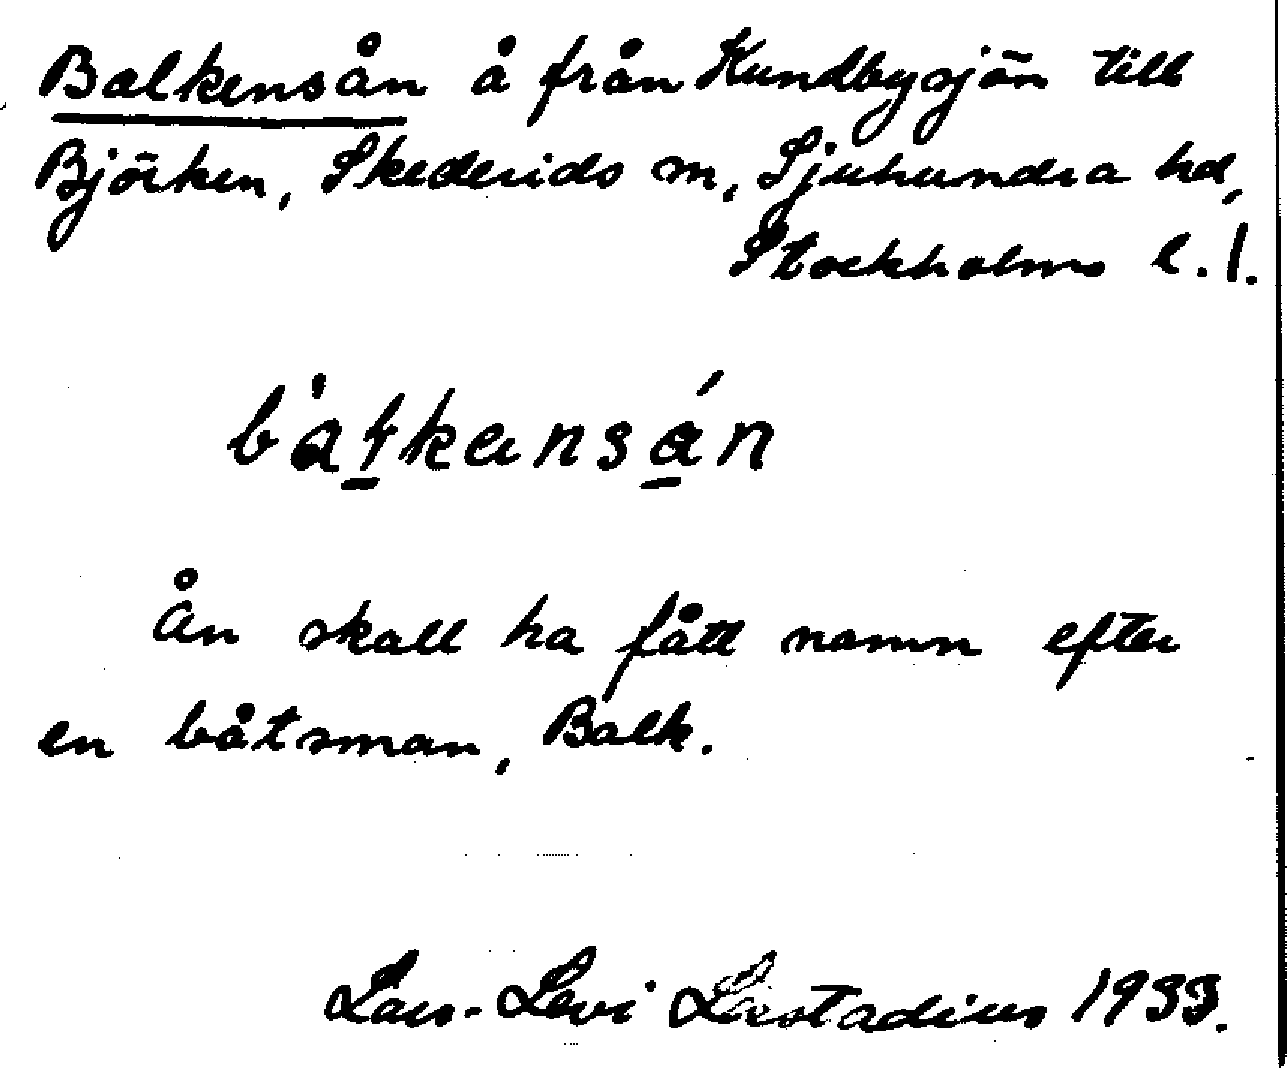 Balkensån å från Kundbysjön till
Björken, Skederids sn, Sjuhundra hd,
Stockholms l.l.
Ån skall ha fått namn efter
en båtsman, Balk.
Lars-Levi Læstadius 1933.